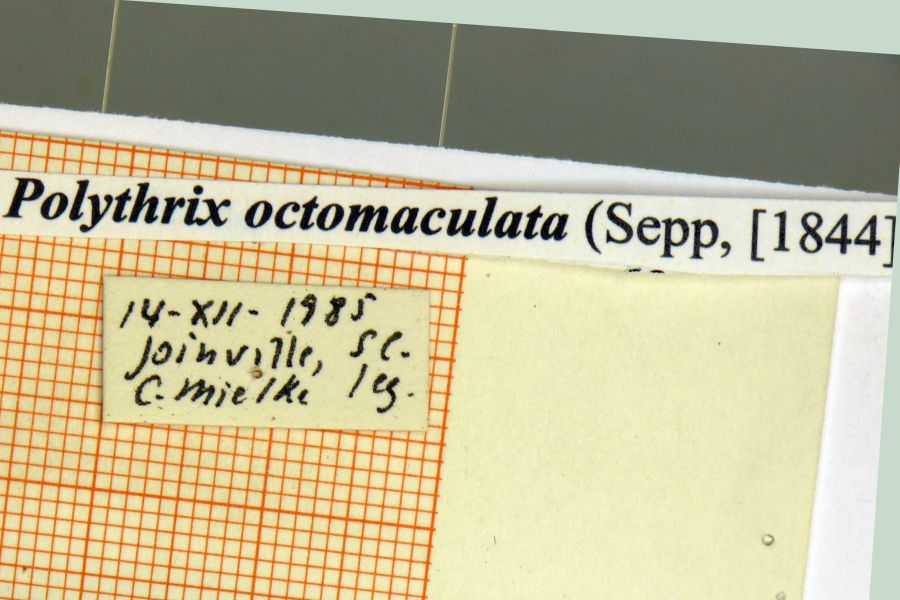 Polythrix octomaculata (Sepp, [1844]
14-XII-1985
Joinville, SC.
C. Mielke leg.